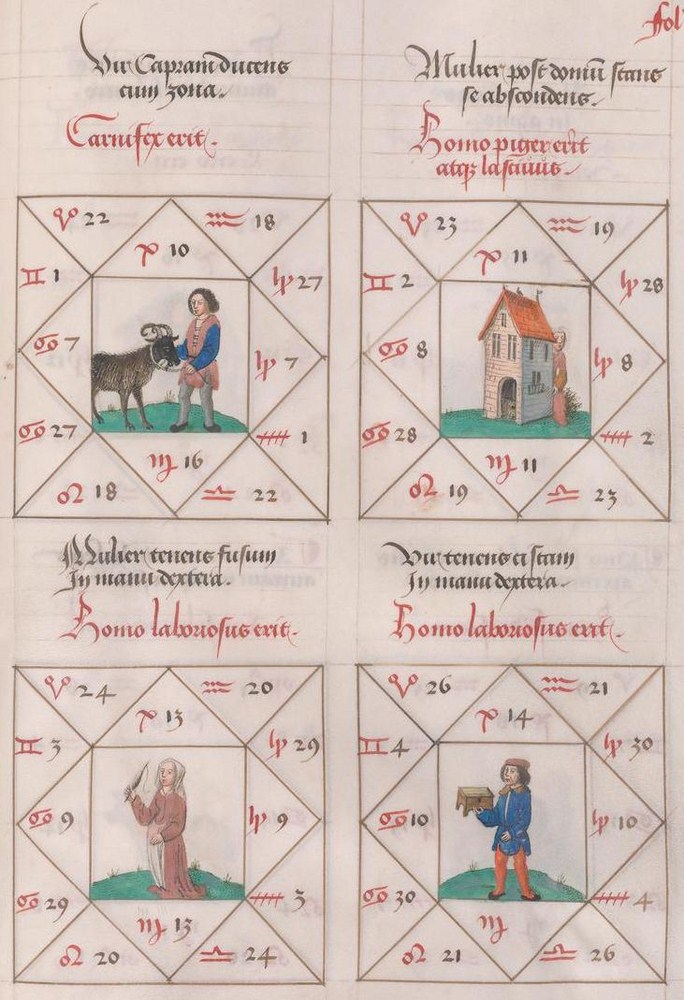 fol
Vir Capram ducens
cum zona.
Carnifex erit.
♈ 22 ♒ 18
♓ 10
♊ 1 ♑ 27
♋ 7 ♑ 7
♋ 27 ♐ 1
♍ 16
♌ 18 ♎ 22
Mulier post domū stans
se abscondens.
Homo piger erit
atqȝ lasciuus.
♈ 23 ♒ 19
♓ 11
♊ 2 ♑ 28
♋ 8 ♑ 8
♋ 28 ♐ 2
♍ 11
♌ 19 ♎ 23
Mulier tenens fusum
In manu dextera.
Homo laboriosus erit.
♈ 24 ♒ 20
♓ 13
♊ 3 ♑ 29
♋ 9 ♑ 9
♋ 29 ♐ 3
♍ 13
♌ 20 ♎ 24
Vir tenens cistam
In manu dextera.
Homo laboriosus erit.
♈ 26 ♒ 21
♓ 14
♊ 4 ♑ 30
♋ 10 ♑ 10
♋ 30 ♐ 4
♍
♌ 21 ♎ 26